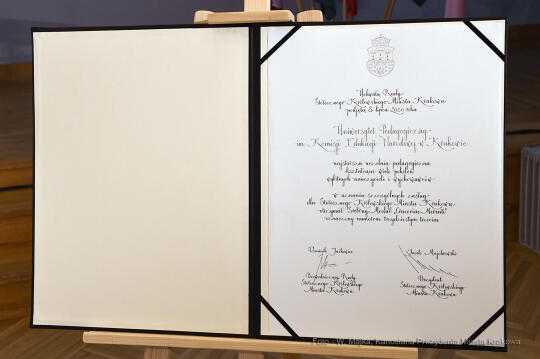 Uchwałą Rady
Stołecznego Królewskiego Miasta Krakowa
podjętą 8 lipca 2020 roku
Uniwersytet Pedagogiczny
im. Komisji Edukacji Narodowej w Krakowie
najstarsza uczelnia pedagogiczna
kształcąca wiele pokoleń
wybitnych nauczycieli i wychowawców
w uznaniu szczególnych zasług
dla Stołecznego Królewskiego Miasta Krakowa
otrzymał Srebrny Medal Cracoviae Merenti
oznaczony numerem trzydziestym trzecim
Dominik Jaśkowiec
Jacek Majchrowski
Przewodniczący Rady
Stołecznego Królewskiego
Miasta Krakowa
Prezydent
Stołecznego Królewskiego
Miasta Krakowa
Foto - W. Majka, Kancelaria Prezydenta Miasta Krakowa